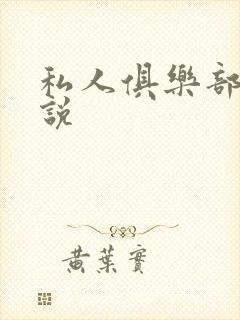 私人俱樂部
說
黃葉實